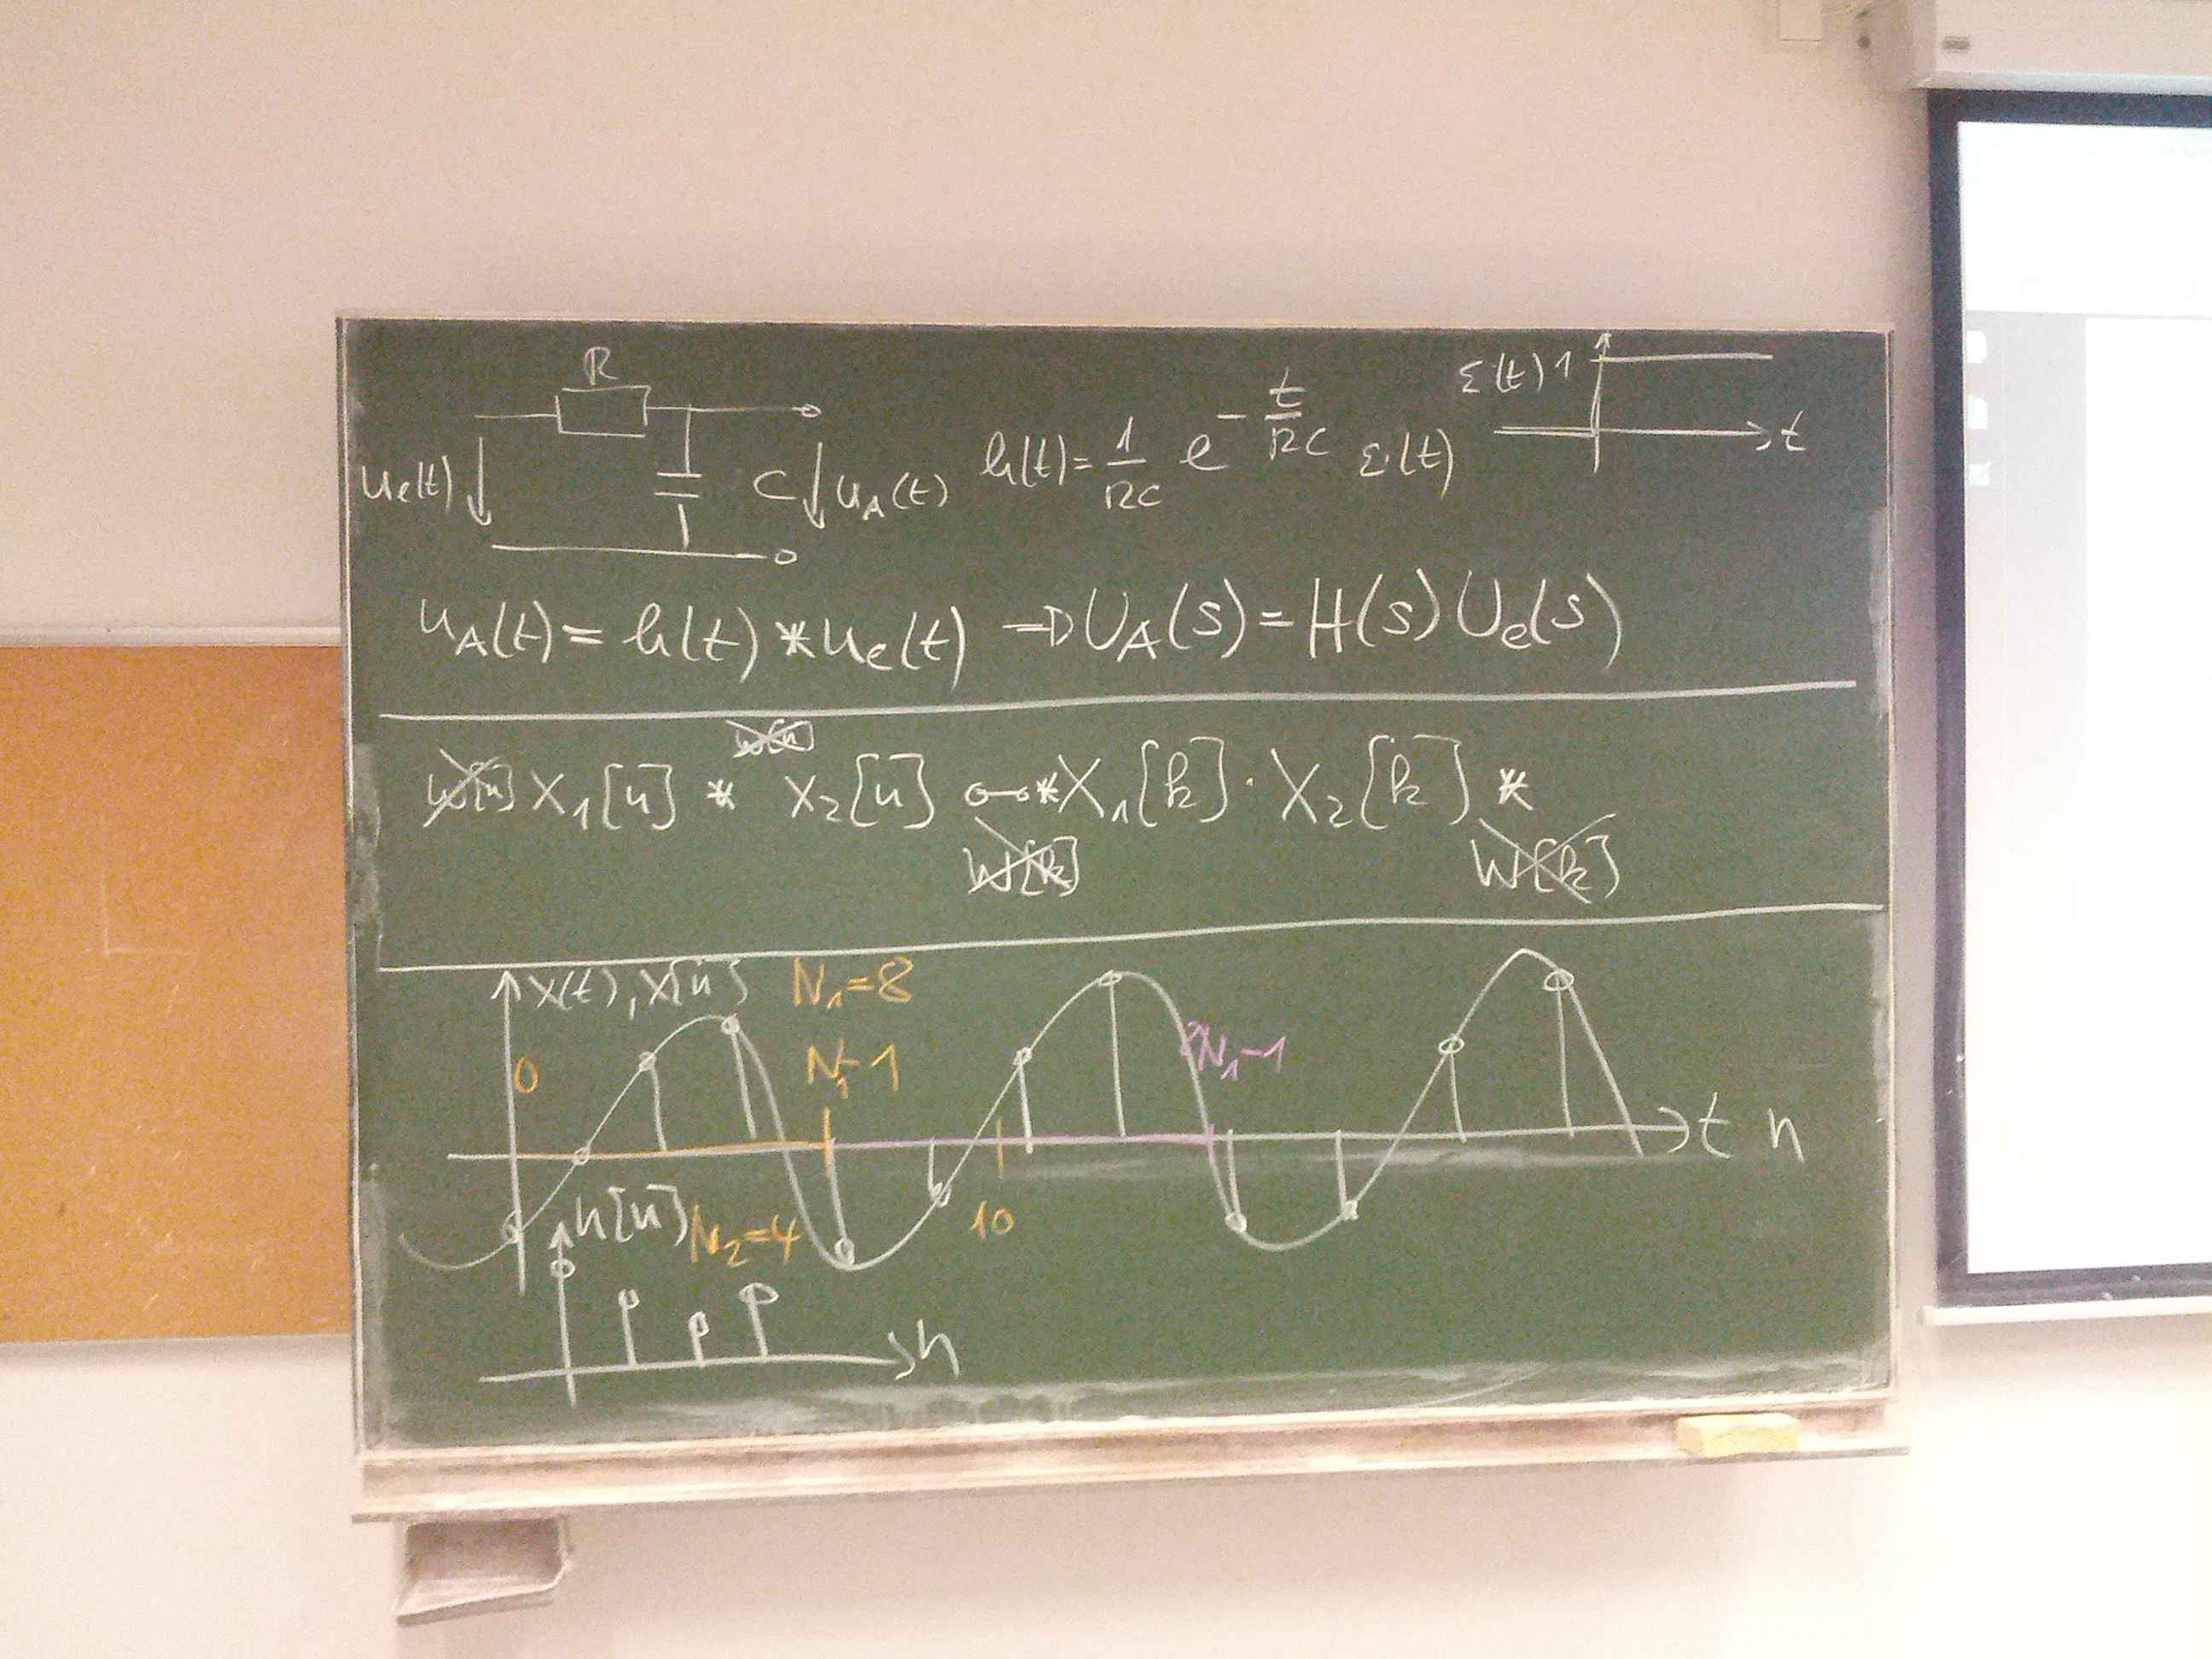 R
ε(t) 1
t
u_e(t) C u_A(t) h(t) = 1/RC e^(-t/RC) ε(t)
u_A(t) = h(t) * u_e(t) → U_A(s) = H(s) U_e(s)
w[n]
w[n] x_1[n] * x_2[n] ○—* X_1[k] · X_2[k] *
W[k] W[k]
x(t), x[n] N_1=8
0 N_1-1 2N_1-1
t n
h[n] N_2=4 10
n